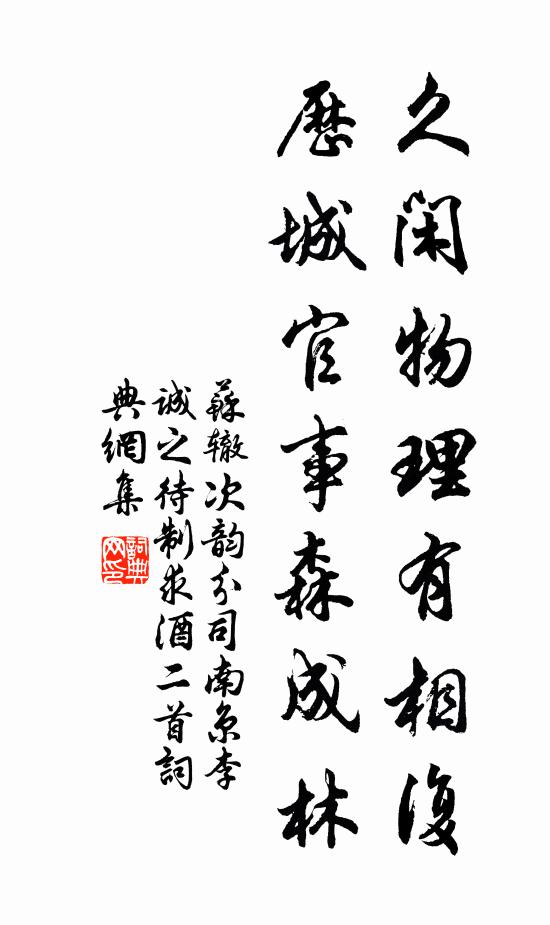 久閑物理有相復
歷城官事森成林
蘇轍次韵分司南京李
誠之待制求酒二首詞
典網集
詞典網印